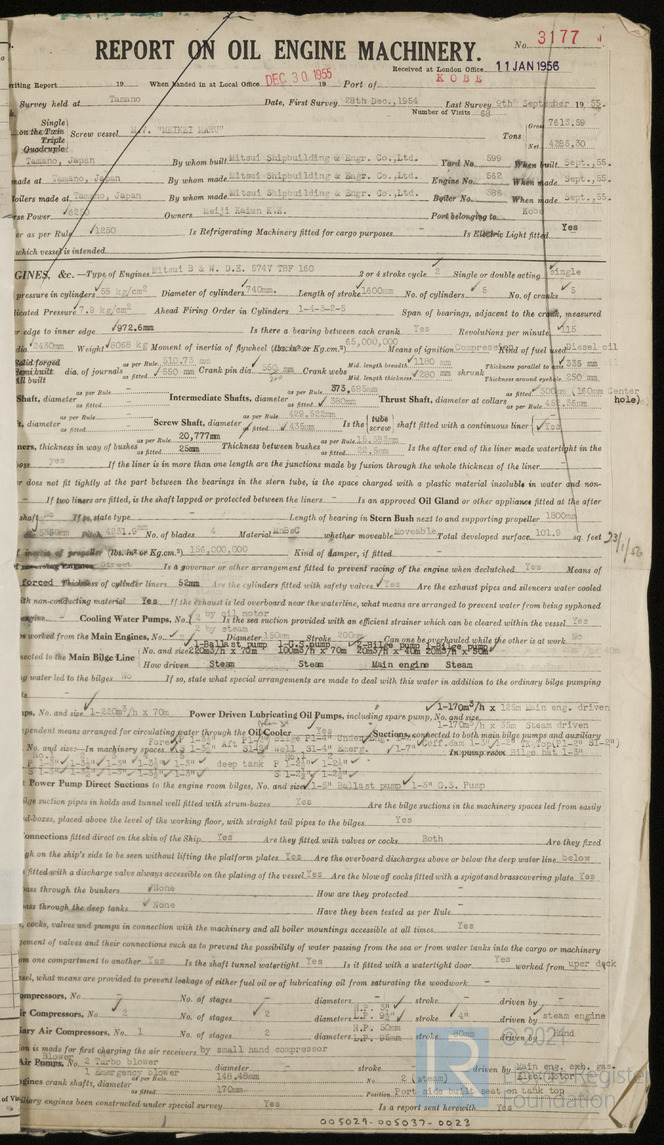 REPORT ON OIL ENGINE MACHINERY.
No. 3177
Received at London Office 11 JAN 1956
writing Report 19 When handed in at Local Office DEC 30 1955 19 Port of KOBE
Survey held at Tamano Date, First Survey 28th Dec., 1954 Last Survey 9th September 19 55.
Number of Visits 68
Single
on the Twin Screw vessel M.V. "MEIKEI MARU" Tons Gross 7613.59
Triple
Quadruple Net 4286.30
Tamano, Japan By whom built Mitsui Shipbuilding & Engr. Co., Ltd. Yard No. 599 When built Sept., 55.
made at Tamano, Japan By whom made Mitsui Shipbuilding & Engr. Co., Ltd. Engine No. 562 When made Sept., 55.
oilers made at Tamano, Japan By whom made Mitsui Shipbuilding & Engr. Co., Ltd. Boiler No. 386 When made Sept., 55.
rse Power 6250 Owners Meiji Kaiun K.K. Port belonging to Kobe
er as per Rule 1250 Is Refrigerating Machinery fitted for cargo purposes - Is Electric Light fitted Yes
which vessel is intended
GINES, &c. —Type of Engines Mitsui B & W. D.E. 574V TBF 160 2 or 4 stroke cycle 2 Single or double acting Single
pressure in cylinders 55 kg/cm² Diameter of cylinders 740mm. Length of stroke 1600mm No. of cylinders 5 No. of cranks 5
licated Pressure 7.9 kg/cm² Ahead Firing Order in Cylinders 1-4-3-2-5 Span of bearings, adjacent to the crank, measured
r edge to inner edge 972.6mm Is there a bearing between each crank Yes Revolutions per minute 115
dia. 2430mm Weight 8068 kg Moment of inertia of flywheel (lbs. in² or Kg.cm²) 65,000,000 Means of ignition Compression Kind of fuel used Diesel oil
Solid forged
Semi built dia. of journals as per Rule 510.73 mm as fitted 550 mm Crank pin dia. 550 mm Crank webs Mid. length breadth 1180 mm Mid. length thickness 280 mm shrunk Thickness parallel to axis 335 mm
All built Thickness around eyehole 250 mm
Shaft, diameter as per Rule - as fitted - Intermediate Shafts, diameter as per Rule 373.685mm as fitted 380mm Thrust Shaft, diameter at collars as fitted 500mm (160mm Center hole)
t, diameter as per Rule - as fitted - Screw Shaft, diameter as per Rule 429.522mm as fitted 435mm Is the {tube screw} shaft fitted with a continuous liner Yes
ners, thickness in way of bushes as per Rule 20,777mm as fitted 25mm Thickness between bushes as per Rule as fitted Is the after end of the liner made watertight in the
ose yes If the liner is in more than one length are the junctions made by fusion through the whole thickness of the liner
r does not fit tightly at the part between the bearings in the stern tube, is the space charged with a plastic material insoluble in water and non-
- If two liners are fitted, is the shaft lapped or protected between the liners - Is an approved Oil Gland or other appliance fitted at the after
shaft No If so, state type - Length of bearing in Stern Bush next to and supporting propeller 1800mm
dia. 5350mm Pitch 4231.9mm No. of blades 4 Material MnBsC whether moveable Moveable Total developed surface 101.9 sq. feet 23/1/56
f inertia of propeller (lbs. in² or Kg.cm²) 156,000,000 Kind of damper, if fitted -
of reversing Engines Direct Is a governor or other arrangement fitted to prevent racing of the engine when declutched Yes Means of
forced Thickness of cylinder liners 52mm Are the cylinders fitted with safety valves Yes Are the exhaust pipes and silencers water cooled
th non-conducting material Yes If the exhaust is led overboard near the waterline, what means are arranged to prevent water from being syphoned
engine - Cooling Water Pumps, No. 4 by oil motor 2 by steam Is the sea suction provided with an efficient strainer which can be cleared within the vessel Yes
s worked from the Main Engines, No. Diameter 150mm Stroke 200mm Can one be overhauled while the other is at work No
nected to the Main Bilge Line No. and size 1-Ballast pump 220m³/h x 70m 1-G.S. pump 100m³/h x 70m 2-Bilge pump 20m³/h x 40m 1-Bilge pump 20m³/h x 50m
How driven Steam Steam Main engine Steam
g water led to the bilges No If so, state what special arrangements are made to deal with this water in addition to the ordinary bilge pumping
ts -
mps, No. and size 1-220m³/h x 70m Power Driven Lubricating Oil Pumps, including spare pump, No. and size 1-170m³/h x 125m Main eng. driven
1-170m³/h x 35m Steam driven
ependent means arranged for circulating water through the Oil Cooler Yes Suctions, connected to both main bilge pumps and auxiliary
No. and size:—In machinery spaces
In pump room
deep tank
t Power Pump Direct Suctions to the engine room bilges, No. and size 1-5" Ballast pump 1-3" G.S. Pump
ilge suction pipes in holds and tunnel well fitted with strum-boxes Yes Are the bilge suctions in the machinery spaces led from easily
d-boxes, placed above the level of the working floor, with straight tail pipes to the bilges Yes
Connections fitted direct on the skin of the Ship Yes Are they fitted with valves or cocks Both Are they fixed
gh on the ship's side to be seen without lifting the platform plates Yes Are the overboard discharges above or below the deep water line below
fitted with a discharge valve always accessible on the plating of the vessel Yes Are the blow off cocks fitted with a spigot and brass covering plate Yes
pass through the bunkers None How are they protected -
pass through the deep tanks None Have they been tested as per Rule -
, cocks, valves and pumps in connection with the machinery and all boiler mountings accessible at all times Yes
gement of valves and their connections such as to prevent the possibility of water passing from the sea or from water tanks into the cargo or machinery
om one compartment to another Yes Is the shaft tunnel watertight Yes Is it fitted with a watertight door Yes worked from upper deck
ssel, what means are provided to prevent leakage of either fuel oil or of lubricating oil from saturating the woodwork -
ompressors, No. - No. of stages - diameters - stroke - driven by -
ir Compressors, No. 2 No. of stages 2 diameters H.P. 3" L.P. 9¼" stroke 4" driven by steam engine
iary Air Compressors, No. 1 No. of stages 2 diameters H.P. 50mm L.P. 95mm stroke 80mm driven by Hand
on is made for first charging the air receivers by small hand compressor
Blower
Air Pumps, No. 2 Turbo blower 1 Emergency blower diameter - stroke - driven by Main eng. exh. gas
ngines crank shafts, diameter as per Rule 148.48mm as fitted 170mm No. 2 (steam)
Position Port side built seat on tank top
iliary engines been constructed under special survey Yes Is a report sent herewith Yes
© 2021
Lloyd's Register
Foundation
LR
005029-005037-0023